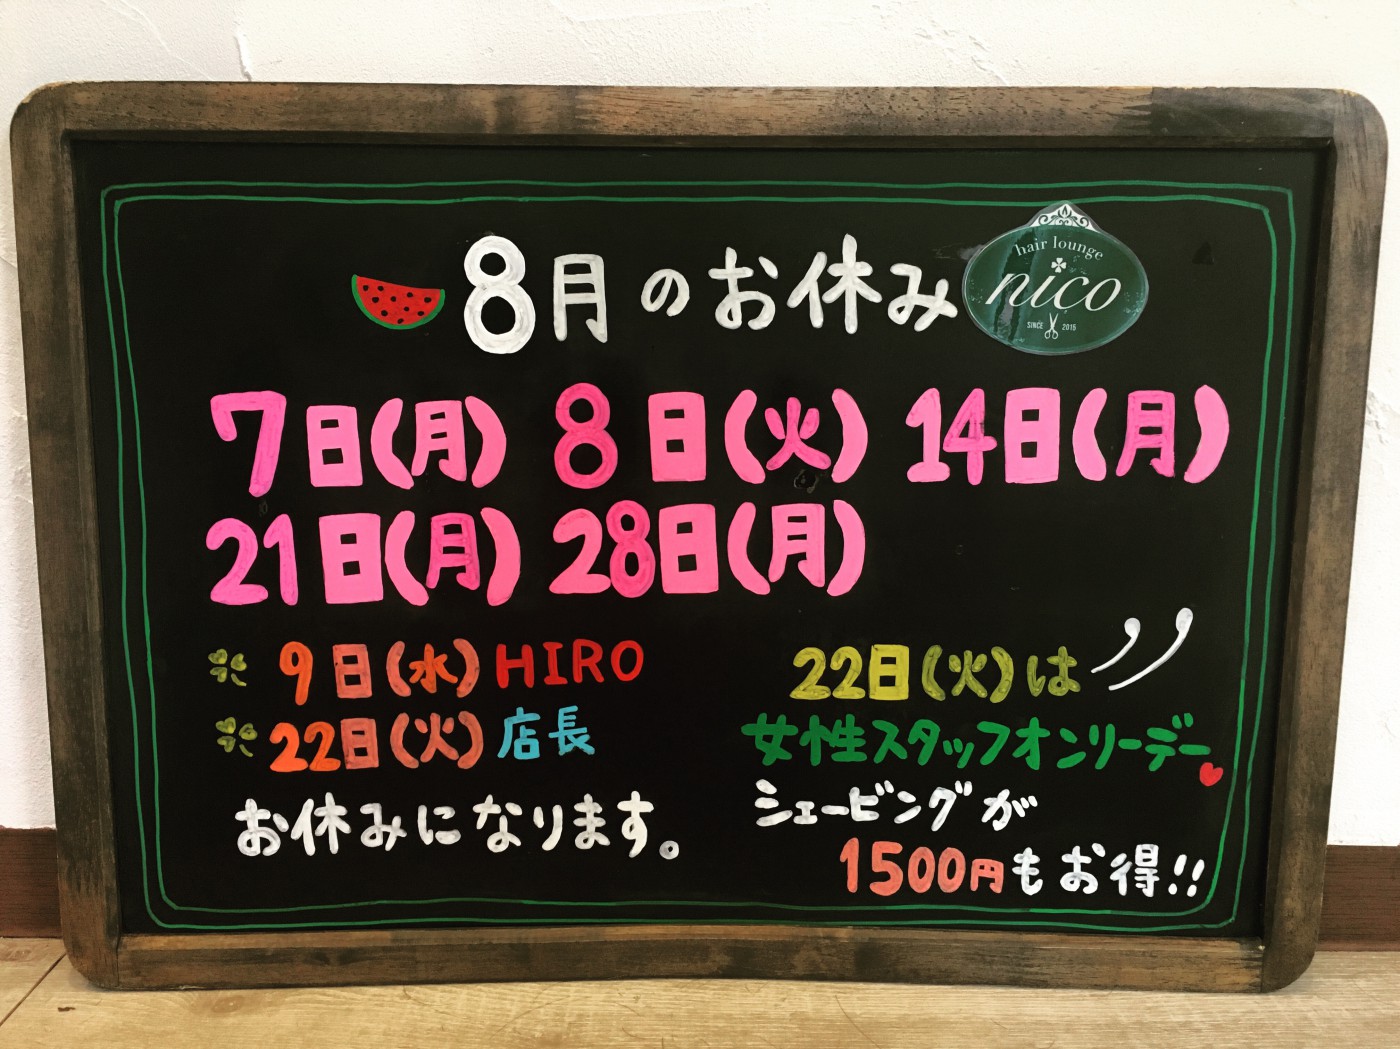 8月のお休み
hair lounge
nico
SINCE 2015
7日(月) 8日(火) 14日(月)
21日(月) 28日(月)
9日(水) HIRO
22日(火) 店長
お休みになります。
22日(火)は
女性スタッフオンリーデー
シェービングが
1500円もお得!!